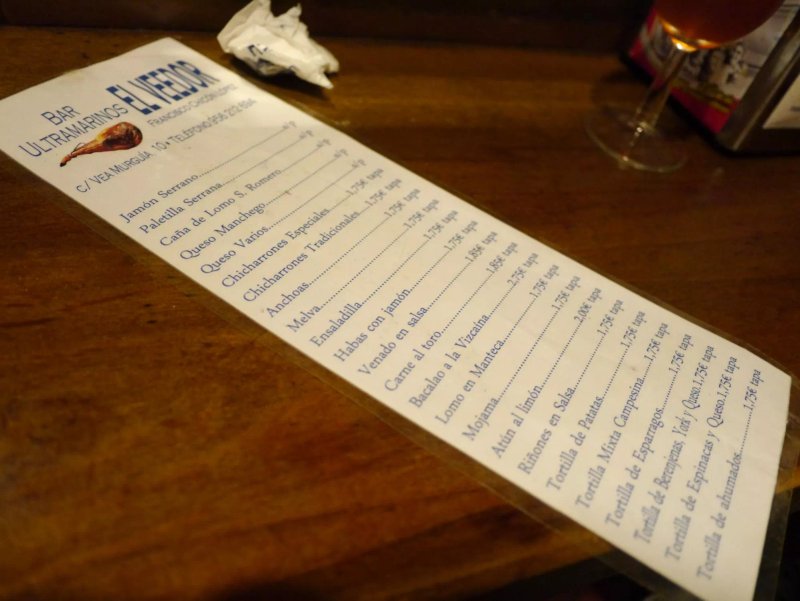 BAR
ULTRAMARINOS EL VEEDOR
FRANCISCO CHICÓN LÓPEZ
C/ VEA MURGUÍA, 10 • TELÉFONO 956 212 694
Jamón Serrano..........s/p
Paletilla Serrana..........s/p
Caña de Lomo S. Romero..........s/p
Queso Manchego..........s/p
Queso Varios..........s/p
Chicharrones Especiales..........1,75€ tapa
Chicharrones Tradicionales..........1,75€ tapa
Anchoas..........1,75€ tapa
Melva..........1,75€ tapa
Ensaladilla..........1,75€ tapa
Habas con jamón..........1,75€ tapa
Venado en salsa..........1,85€ tapa
Carne al toro..........1,85€ tapa
Bacalao a la Vizcaina..........2,75€ tapa
Lomo en Manteca..........1,75€ tapa
Mojama..........1,75€ tapa
Atún al limón..........2,00€ tapa
Riñones en Salsa..........1,75€ tapa
Tortilla de Patatas..........1,75€ tapa
Tortilla Mixta Campesina..........1,75€ tapa
Tortilla de Esparragos..........1,75€ tapa
Tortilla de Berenjenas, York y Queso.1,75€ tapa
Tortilla de Espinacas y Queso..1,75€ tapa
Tortilla de ahumados..........1,75€ tapa